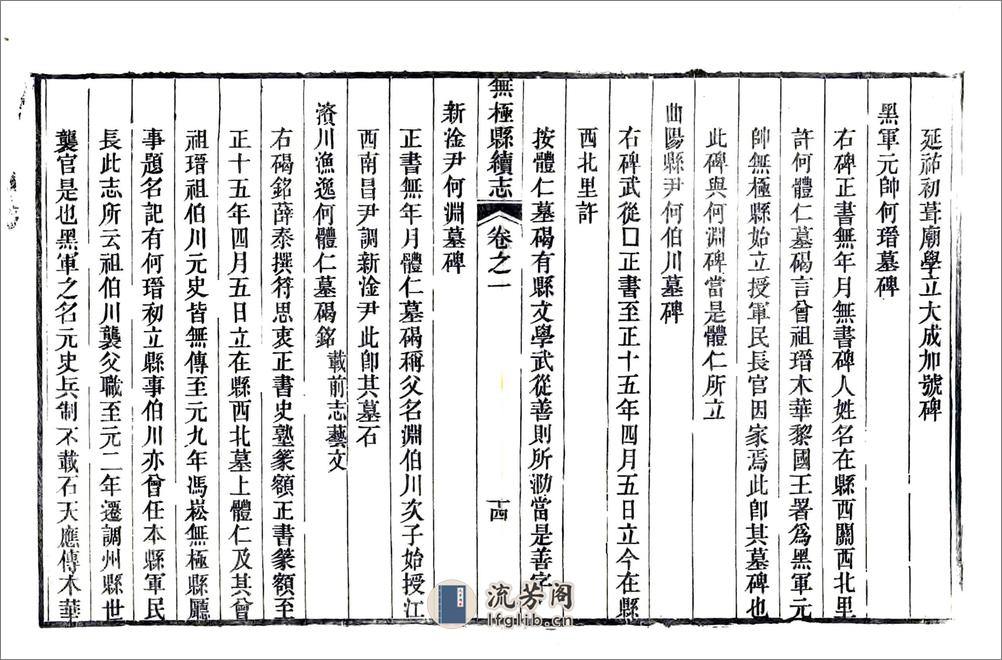 延祐初葺廟學立大成加號碑
黑軍元帥何瑨墓碑
右碑正書無年月無書碑人姓名在縣西關西北里
許何體仁墓碣言曾祖瑨木華黎國王署爲黑軍元
帥無極縣始立授軍民長官因家焉此卽其墓碑也
此碑與何淵碑當是體仁所立
曲陽縣尹何伯川墓碑
右碑武從口正書至正十五年四月五日立今在縣
西北里許
按體仁墓碣有縣文學武從善則所泐當是善字
無極縣續志 卷之一 十四
新淦尹何淵墓碑
正書無年月體仁墓碣稱父名淵伯川次子始授江
西南昌尹調新淦尹此卽其墓石
滋川漁逸何體仁墓碣銘 載前志藝文
右碣銘薛泰撰符思衷正書史塾篆額正書篆額至
正十五年四月五日立在縣西北墓上體仁及其曾
祖瑨祖伯川元史皆無傳至元九年馮崧無極縣廳
事題名記有何瑨初立縣事伯川亦曾任本縣軍民
長此志所云祖伯川襲父職至元二年遷調州縣世
襲官是也黑軍之名元史兵制不載石天應傳木華
流芳阁
lfglib.cn